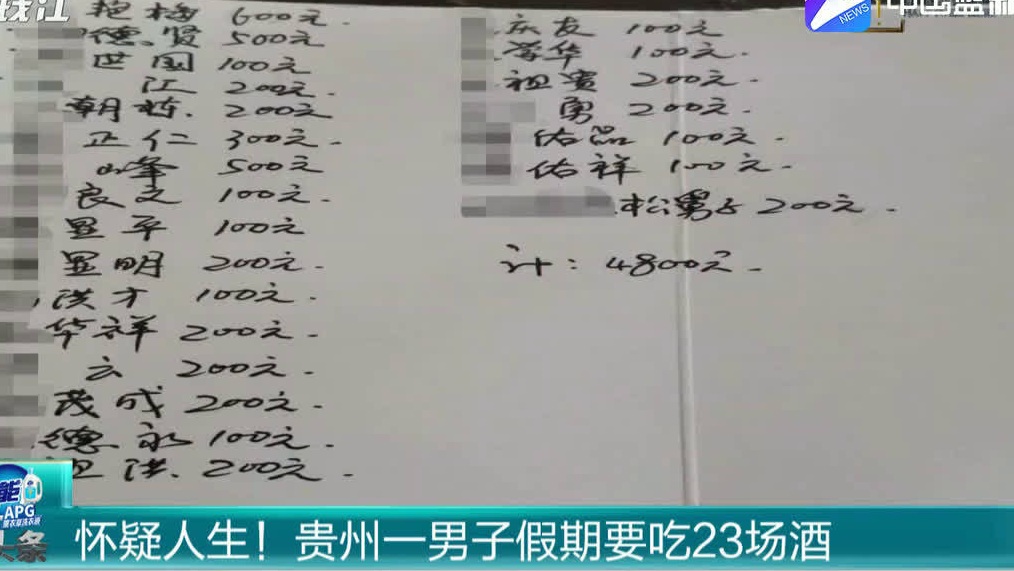 钱江
艳梅 600元.
德贤 500元
世国 100元
江 200元.
朝栋. 200元
正仁 300元.
山峰 500元
良文 100元.
显平 100元
显明 200元.
洪才 100元.
华祥 200元.
云 200元.
茂成 200元.
德永 100元.
祖洪. 200元.
中国蓝新
NEWS
庆友 100元
荣华 100元.
祖贵 200元.
勇 200元.
佑品 100元.
佑祥 100元.
松舅子 200元.
计: 4800元.
能
APG
头条
怀疑人生！贵州一男子假期要吃23场酒